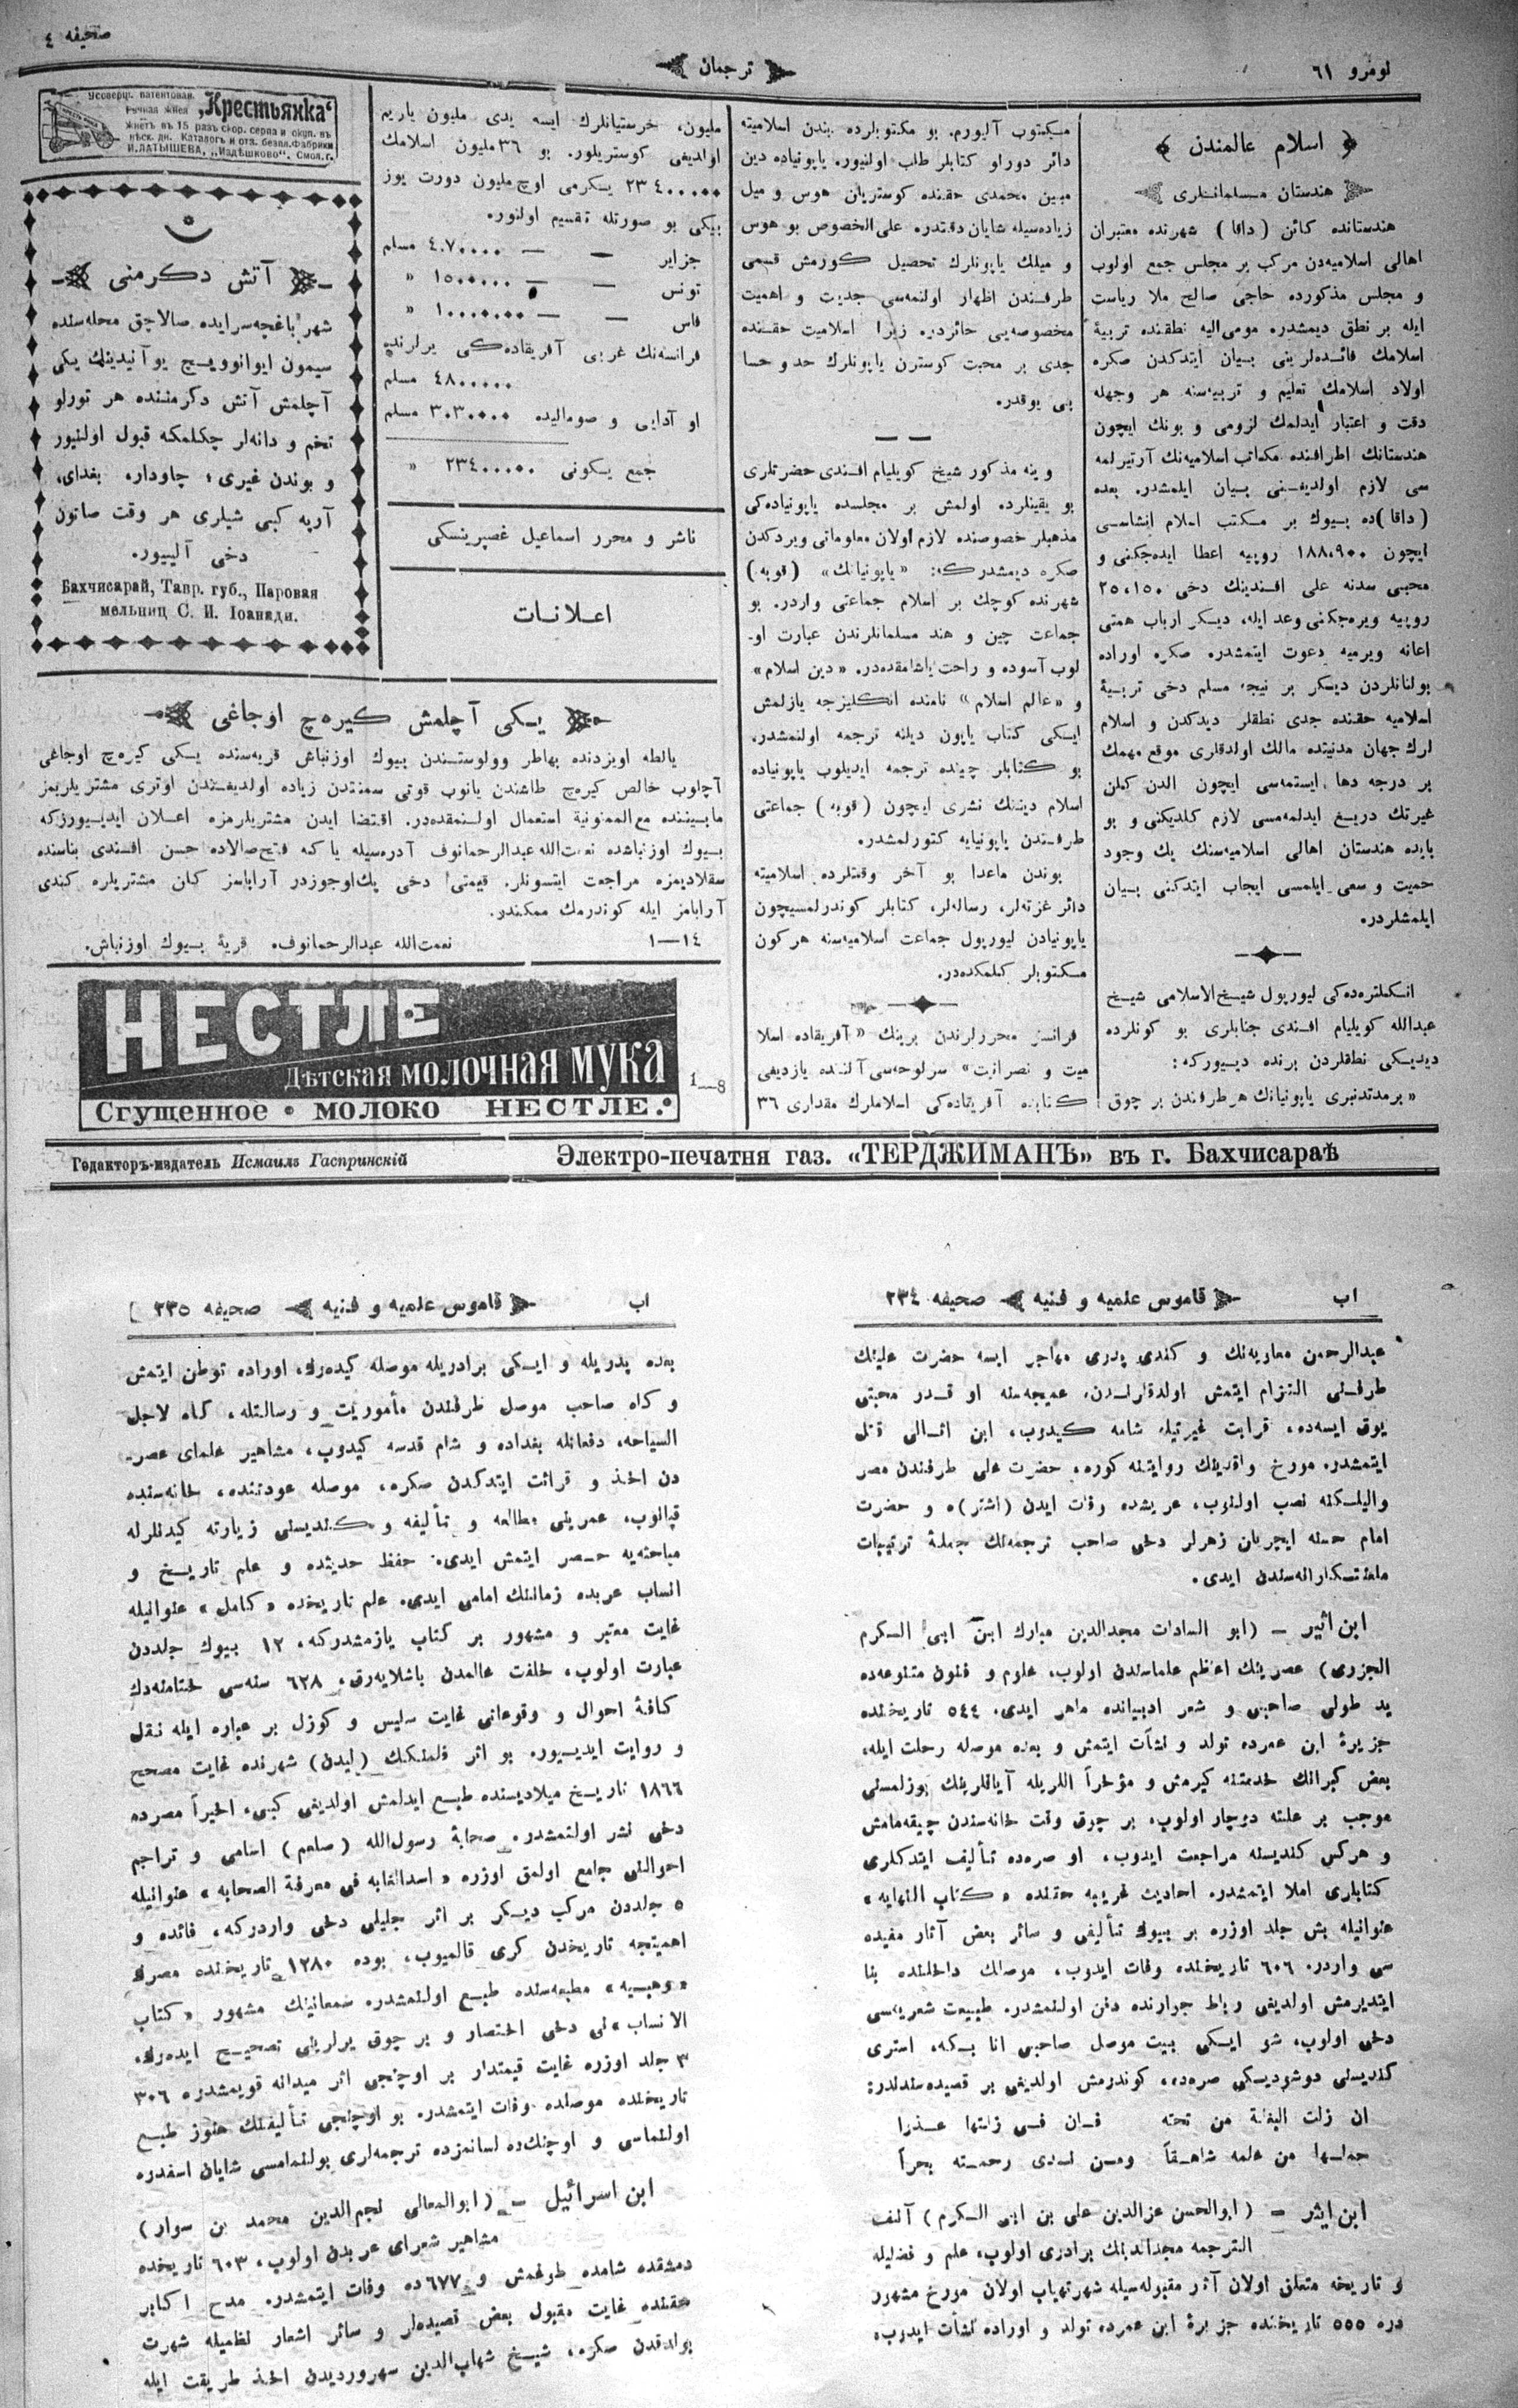 نومرو ٦١
ترجمان
صحیفه ٤
اسلام عالمندن
هندستان مسلمانلری
هندستانده كائن (داقا) شهرنده معتبران
اهالی اسلامیه‌دن مركب بر مجلس جمع اولوب
و مجلس مذكورده حاجی صالح ملا ریاست
ایله بر نطق دیمشدر. مومی الیه نطقنده تربیۀ
اسلامك فائده‌لرینی بیان ایتدكدن صكره
اولاد اسلامك تعلیم و تربیه‌سنه هر وجهله
دقت و اعتبار ایدلمك لزومی و بونك ایچون
هندستانك اطرافنده مكاتب اسلامیه‌نك آرتیرلمه
سی لازم اولدیغنی بیان ایلمشدر. بعده
(داقا)ده بیوك بر مكتب اسلام انشاسی
ایچون ١٨٨،٩٠٠ روپیه اعطا ایده‌جكنی و
محبی سدنه علی افندینك دخی ٢٥،١٥٠
روپیه ویره‌جكنی وعد ایله، دیكر ارباب همتی
اعانه ویرمیه دعوت ایتمشدر. صكره اوراده
بولنانلردن دیكر بر نیجه مسلم دخی تربیۀ
اسلامیه حقنده جدی نطقلر دیدكدن و اسلام
لرك جهان مدنیتده مالك اولدقلری موقع مهمك
بر درجه دها ایستمه‌سی ایچون الدن كلن
غیرتك دریغ ایدلمه‌مسی لازم كلدیكنی و بو
بابده هندستان اهالی اسلامیه‌سنك پك وجود
حمیت و سعی ایلمسی ایجاب ایتدكنی بیان
ایلمشلردر.
انكلتره‌ده‌كی لیورپول شیخ‌الاسلامی شیخ
عبدالله كویلیام افندی جنابلری بو كونلرده
دیدیكی نطقلردن برنده دیییوركه:
« برمدتدنبری یاپونیانك هر طرفندن بر چوق
مكتوب آلیورم. بو مكتوبلرده بندن اسلامیته
دائر دورلو كتابلر طلب اولنیور. یاپونیاده دین
مبین محمدی حقنده كوستریلن هوس و میل
زیاده‌سیله شایان دقتدر. علی‌الخصوص بو هوس
و میلك یاپونلرك تحصیل كورمش قسمی
طرفندن اظهار اولنمه‌سی جدیت و اهمیت
مخصوصه‌یی حائزدر. زیرا اسلامیت حقنده
جدی بر محبت كوسترن یاپونلرك حد و حسا
بی یوقدر.
وینه مذكور شیخ كویلیام افندی حضرتلری
بو یقینلرده اولمش بر مجلسده یاپونیاده‌كی
مذهبلر خصوصنده لازم اولان معلوماتی ویردكدن
صكره دیمشدركه: «یاپونیانك» (قوبه)
شهرنده كوچك بر اسلام جماعتی واردر. بو
جماعت چین و هند مسلمانلرندن عبارت او‍
لوب آسوده و راحت یاشامقده‌در. «دین اسلام»
و «عالم اسلام» نامنده انكلیزجه یازلمش
ایكی كتاب یاپون دیلنه ترجمه اولنمشدر.
بو كتابلر چینده ترجمه ایدیلوب یاپونیاده
اسلام دیننك نشری ایچون (قوبه) جماعتی
طرفندن یاپونیایه كتورلمشدر.
بوندن ماعدا بو آخر وقتلرده اسلامیته
دائر غزته‌لر، رساله‌لر، كتابلر كوندرلمسیچون
یاپونیادن لیورپول جماعت اسلامیه‌سنه هر كون
مكتوبلر كلمكده‌در.
فرانسز محررلرندن برینك «آفریقاده اسلا
میت و نصرانیت» سرلوحه‌سی آلتنده یازدیغی
كتابده آفریقاده‌كی اسلاملرك مقداری ٣٦
ملیون، خرستیانلرك ایسه یدی ملیون یاریم
اولدیغی كوستریلور. بو ٣٦ ملیون اسلامك
٢٣٤٠٠٠٠٠ یكرمی اوچ ملیون دورت یوز
بیكی بو صورتله تقسیم اولنور.
جزایر — — ٤٠٧٠٠٠٠ مسلم
تونس — — ١٥٠٠٠٠٠ »
فاس — — ١٠٠٠٠٠٠٠ »
فرانسه‌نك غربی آفریقاده‌كی یرلرنده
٤٨٠٠٠٠٠ مسلم
او آدابی و صومالیده ٣٠٣٠٠٠٠ مسلم
جمع یكونی ٢٣٤٠٠٠٠٠ »
ناشر و محرر اسماعیل غصپرینسكی
اعلانات
Усоверш. патентован.
Ручная жнея „Крестьянка“
Жнетъ въ 15 разъ скор. серпа и окуп. въ
нѣск. дн. Каталогъ и отз. безпл. Фабрики
И. ЛАТЫШЕВА, „Издѣшково“. Смол. г.
آتش دكرمنی
شهر باغچه‌سرایده صالاچق محله‌سنده
سیمون ایوانوویچ یوآنیدینك یكی
آچلمش آتش دكرمننده هر تورلو
تخم و دانه‌لر چكلمكه قبول اولنیور
و بوندن غیری؛ چاودار، بغدای،
آرپه كبی شیلری هر وقت صاتون
دخی آلییور.
Бахчисарай, Тавр. губ., Паровая
мельниц С. И. Іоаниди.
یكی آچلمش كیره‌چ اوجاغی
یالطه اویزدنده بهاطر وولوستندن بیوك اوزنباش قریه‌سنده یكی كیره‌چ اوجاغی
آچلوب خالص كیره‌چ طاشندن یانوب قوتی سمنتدن زیاده اولدیغندن اوتری مشتریلریمز
مابیننده مع‌الممنونیة استعمال اولنمقده‌در. اقتضا ایدن مشتریلرمزه اعلان ایدییورزكه
بیوك اوزنباشده نعمت‌الله عبدالرحمانوف آدره‌سیله یا كه فتح‌صالاده حسن افندی بناسنده
سقلادیمزه مراجعت ایتسونلر. قیمتی دخی پك اوجوزدر آراباسز كلن مشتریلره كندی
آرابامز ایله كوندرمك ممكندر.
١—١٤ نعمت‌الله عبدالرحمانوف. قریۀ بیوك اوزنباش.
НЕСТЛЕ
Дѣтская МОЛОЧНАЯ МУКА
Сгущенное • МОЛОКО НЕСТЛЕ.
1—8
Редакторъ-издатель Исмаилъ Гаспринскій
Электро-печатня газ. «ТЕРДЖИМАНЪ» въ г. Бахчисараѣ
اب قاموس علمیه و فنیه صحیفه ٢٣٤
عبدالرحمن معاریه‌نك و كندی پدری مهاجر ایسه حضرت علینك
طرفنی التزام ایتمش اولدقلرندن، عمیجه‌سنه او قدر محبتی
یوق ایسه‌ده، قرابت غیرتیله شامه كیدوب، ابن اثالی قتل
ایتمشدر. مورخ واقدینك روایتنه كوره، حضرت علی طرفندن مصر
والیلكنه نصب اولنوب، عریشده وفات ایدن (اشتر)ه و حضرت
امام حسنه ایچریلن زهرلر دخی صاحب ترجمه‌نك جملۀ ترتیبات
ملعنتكارانه‌سندن ایدی.
ابن اثیر — (ابو السادات مجدالدین مبارك ابن ابی الكرم
الجزری) عصرینك اعظم علماسندن اولوب، علوم و فنون متنوعه‌ده
ید طولی صاحبی و شعر ادبیاتده ماهر ایدی. ٥٤٤ تاریخنده
جزیرۀ ابن عمرده تولد و نشأت ایتمش و بعده موصله رحلت ایله،
بعض كبرانك خدمتنه كیرمش و مؤخراً اللریله آیاقلرینك بوزلمسنی
موجب بر علته دوچار اولوب، بر چوق وقت خانه‌سندن چیقه‌مامش
و هركس كندیسنه مراجعت ایدوب، او صره‌ده تألیف ایتدكلری
كتابلری املا ایتمشدر. احادیث غریبه حقنده «كتاب النهایه»
عنوانیله بش جلد اوزره بر بیوك تألیفی و سائر بعض آثار مفیده
سی واردر. ٦٠٦ تاریخنده وفات ایدوب، موصلك داخلنده بنا
ایتدیرمش اولدیغی رباط جوارنده دفن اولنمشدر. طبیعت شعریه‌سی
دخی اولوب، شو ایكی بیت موصل صاحبی اتا بكه، استری
كندیسنی دوشوردیكی صره‌ده، كوندرمش اولدیغی بر قصیده‌سندندر:
ان زلت البغلة من تحته فان فی زلتها عذرا
حملها من علمه شاهقاً ومن ندی رحمته بحراً
ابن اثیر — (ابوالحسن عزالدین علی بن ابی الكرم) آنف
الترجمه مجدالدینك برادری اولوب، علم و فضلیله
و تاریخه متعلق اولان آثار مقبوله‌سیله شهرتیاب اولان مورخ مشهور
در. ٥٥٥ تاریخنده جزیرۀ ابن عمرده تولد و اوراده نشأت ایدوب،
اب قاموس علمیه و فنیه صحیفه ٢٣٥
بعده پدریله و ایكی برادریله موصله كیده‌رك، اوراده توطن ایتمش
و كاه صاحب موصل طرفندن مأموریت و رسالتله، كاه لاجل
السیاحه، دفعاتله بغداده و شام قدسه كیدوب، مشاهیر علمای عصر‍
دن اخذ و قرائت ایتدكدن صكره، موصله عودتنده، خانه‌سنده
قپانوب، عمرینی مطالعه و تألیفه و كندیسنی زیارته كیدنلرله
مباحثه‌یه حصر ایتمش ایدی. حفظ حدیثده و علم تاریخ و
انساب عربده زماننك امامی ایدی. علم تاریخده «كامل» عنوانیله
غایت معتبر و مشهور بر كتاب یازمشدركه، ١٢ بیوك جلددن
عبارت اولوب، خلقت عالمدن باشلایه‌رق، ٦٢٨ سنه‌سی ختامنه‌دك
كافۀ احوال و وقوعاتی غایت سلیس و كوزل بر عباره ایله نقل
و روایت ایدییور. بو اثر فلمنكك (لیدن) شهرنده غایت مصحح
١٨٦٦ تاریخ میلادیسنده طبع ایدلمش اولدیغی كبی، اخیراً مصرده
دخی نشر اولنمشدر. صحابۀ رسول‌الله (صلعم) اسامی و تراجم
احوالنی جامع اولمق اوزره «اسدالغابه فی معرفة الصحابه» عنوانیله
٥ جلددن مركب دیكر بر اثر جلیلی دخی واردركه، فائده و
اهمیتجه تاریخدن كری قالمیوب، بوده ١٢٨٠ تاریخنده مصرك
«وهبیه» مطبعه‌سنده طبع اولنمشدر. سمعانینك مشهور «كتاب
الانساب»نی دخی اختصار و بر چوق یرلرینی تصحیح ایده‌رك،
٣ جلد اوزره غایت قیمتدار بر اوچنجی اثر میدانه قویمشدر. ٣٠٦
تاریخنده موصلده وفات ایتمشدر. بو اوچنجی تألیفنك هنوز طبع
اولنماسی و اوچنك‌ده لسانمزده ترجمه‌لری بولنمامسی شایان اسفدر.
ابن اسرائیل — (ابوالمعالی نجم‌الدین محمد بن سوار)
مشاهیر شعرای عربدن اولوب، ٦٠٣ تاریخنده
دمشقده شامده طوغمش و ٦٧٧ده وفات ایتمشدر. مدح اكابر
حقنده غایت مقبول بعض قصیده‌لر و سائر اشعار نظمیله شهرت
بولدقدن صكره، شیخ شهاب‌الدین سهروردیدن اخذ طریقت ایله